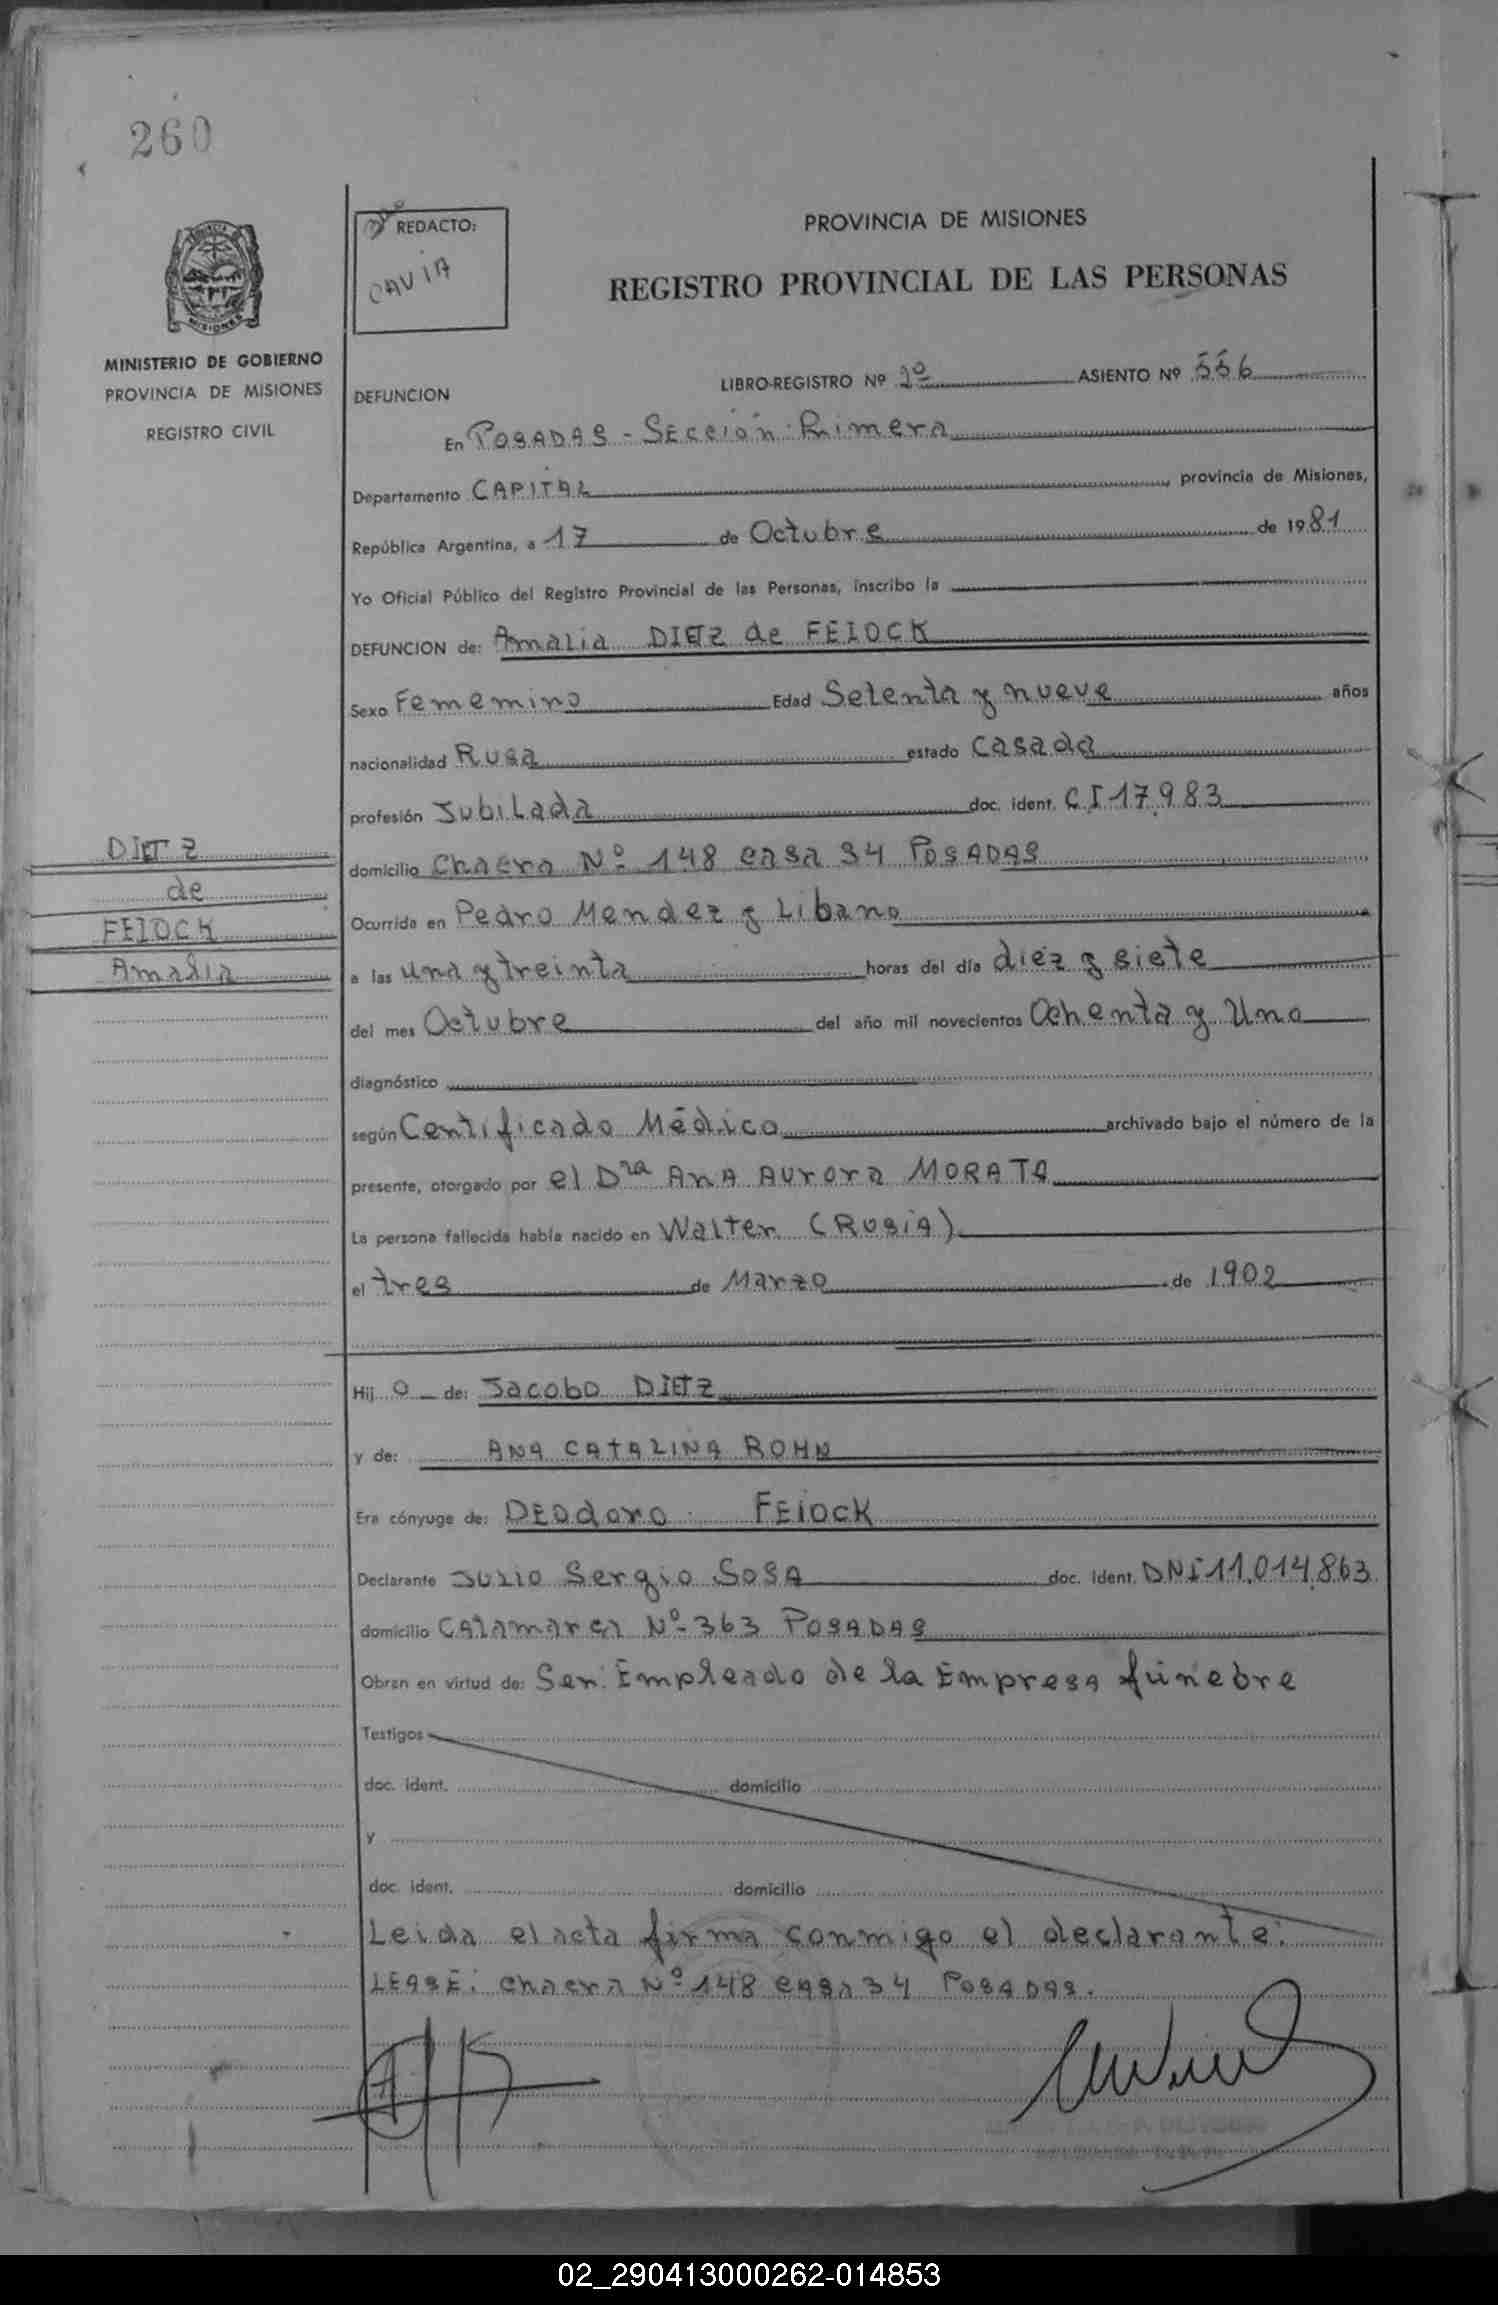 260
REDACTO:
CAVIA
PROVINCIA DE MISIONES
REGISTRO PROVINCIAL DE LAS PERSONAS
MINISTERIO DE GOBIERNO
PROVINCIA DE MISIONES
REGISTRO CIVIL
DEFUNCION
LIBRO-REGISTRO Nº 2º ASIENTO Nº 556
En POSADAS - SEcción: Primera
Departamento CAPITAL provincia de Misiones,
República Argentina, a 17 de Octubre de 1981
Yo Oficial Público del Registro Provincial de las Personas, inscribo la
DEFUNCION de: Amalia DIETZ de FEIOCK
Sexo Fememino Edad Setenta y nueve años
nacionalidad Rusa estado casada
profesión Jubilada doc. ident. C.I 17.983
domicilio Chacra Nº 148 casa 34 POSADAS
Ocurrida en Pedro Mendez y Libano
a las una y treinta horas del día diez y siete
del mes Octubre del año mil novecientos Ochenta y Uno
diagnóstico
según Certificado Médico archivado bajo el número de la
presente, otorgado por el Dra ANA AURORA MORATA
La persona fallecida había nacido en Walter (Rusia)
el tres de Marzo de 1902
DIETZ
de
FEIOCK
Amalia
Hij o de: Jacobo DIETZ
y de: ANA CATALINA ROHN
Era cónyuge de: DEodoro FEIOCK
Declarante JULIO Sergio SOSA doc. Ident. DNI 11.014.863
domicilio Catamarca Nº 363 POSADAS
Obran en virtud de: Ser: Empleado de la Empresa fúnebre
Testigos
doc. ident. domicilio
y
doc. ident. domicilio
Leida el acta firma conmigo el declarante:
LEASE: chacra Nº 148 casa 34 POSADAS.
02_290413000262-014853